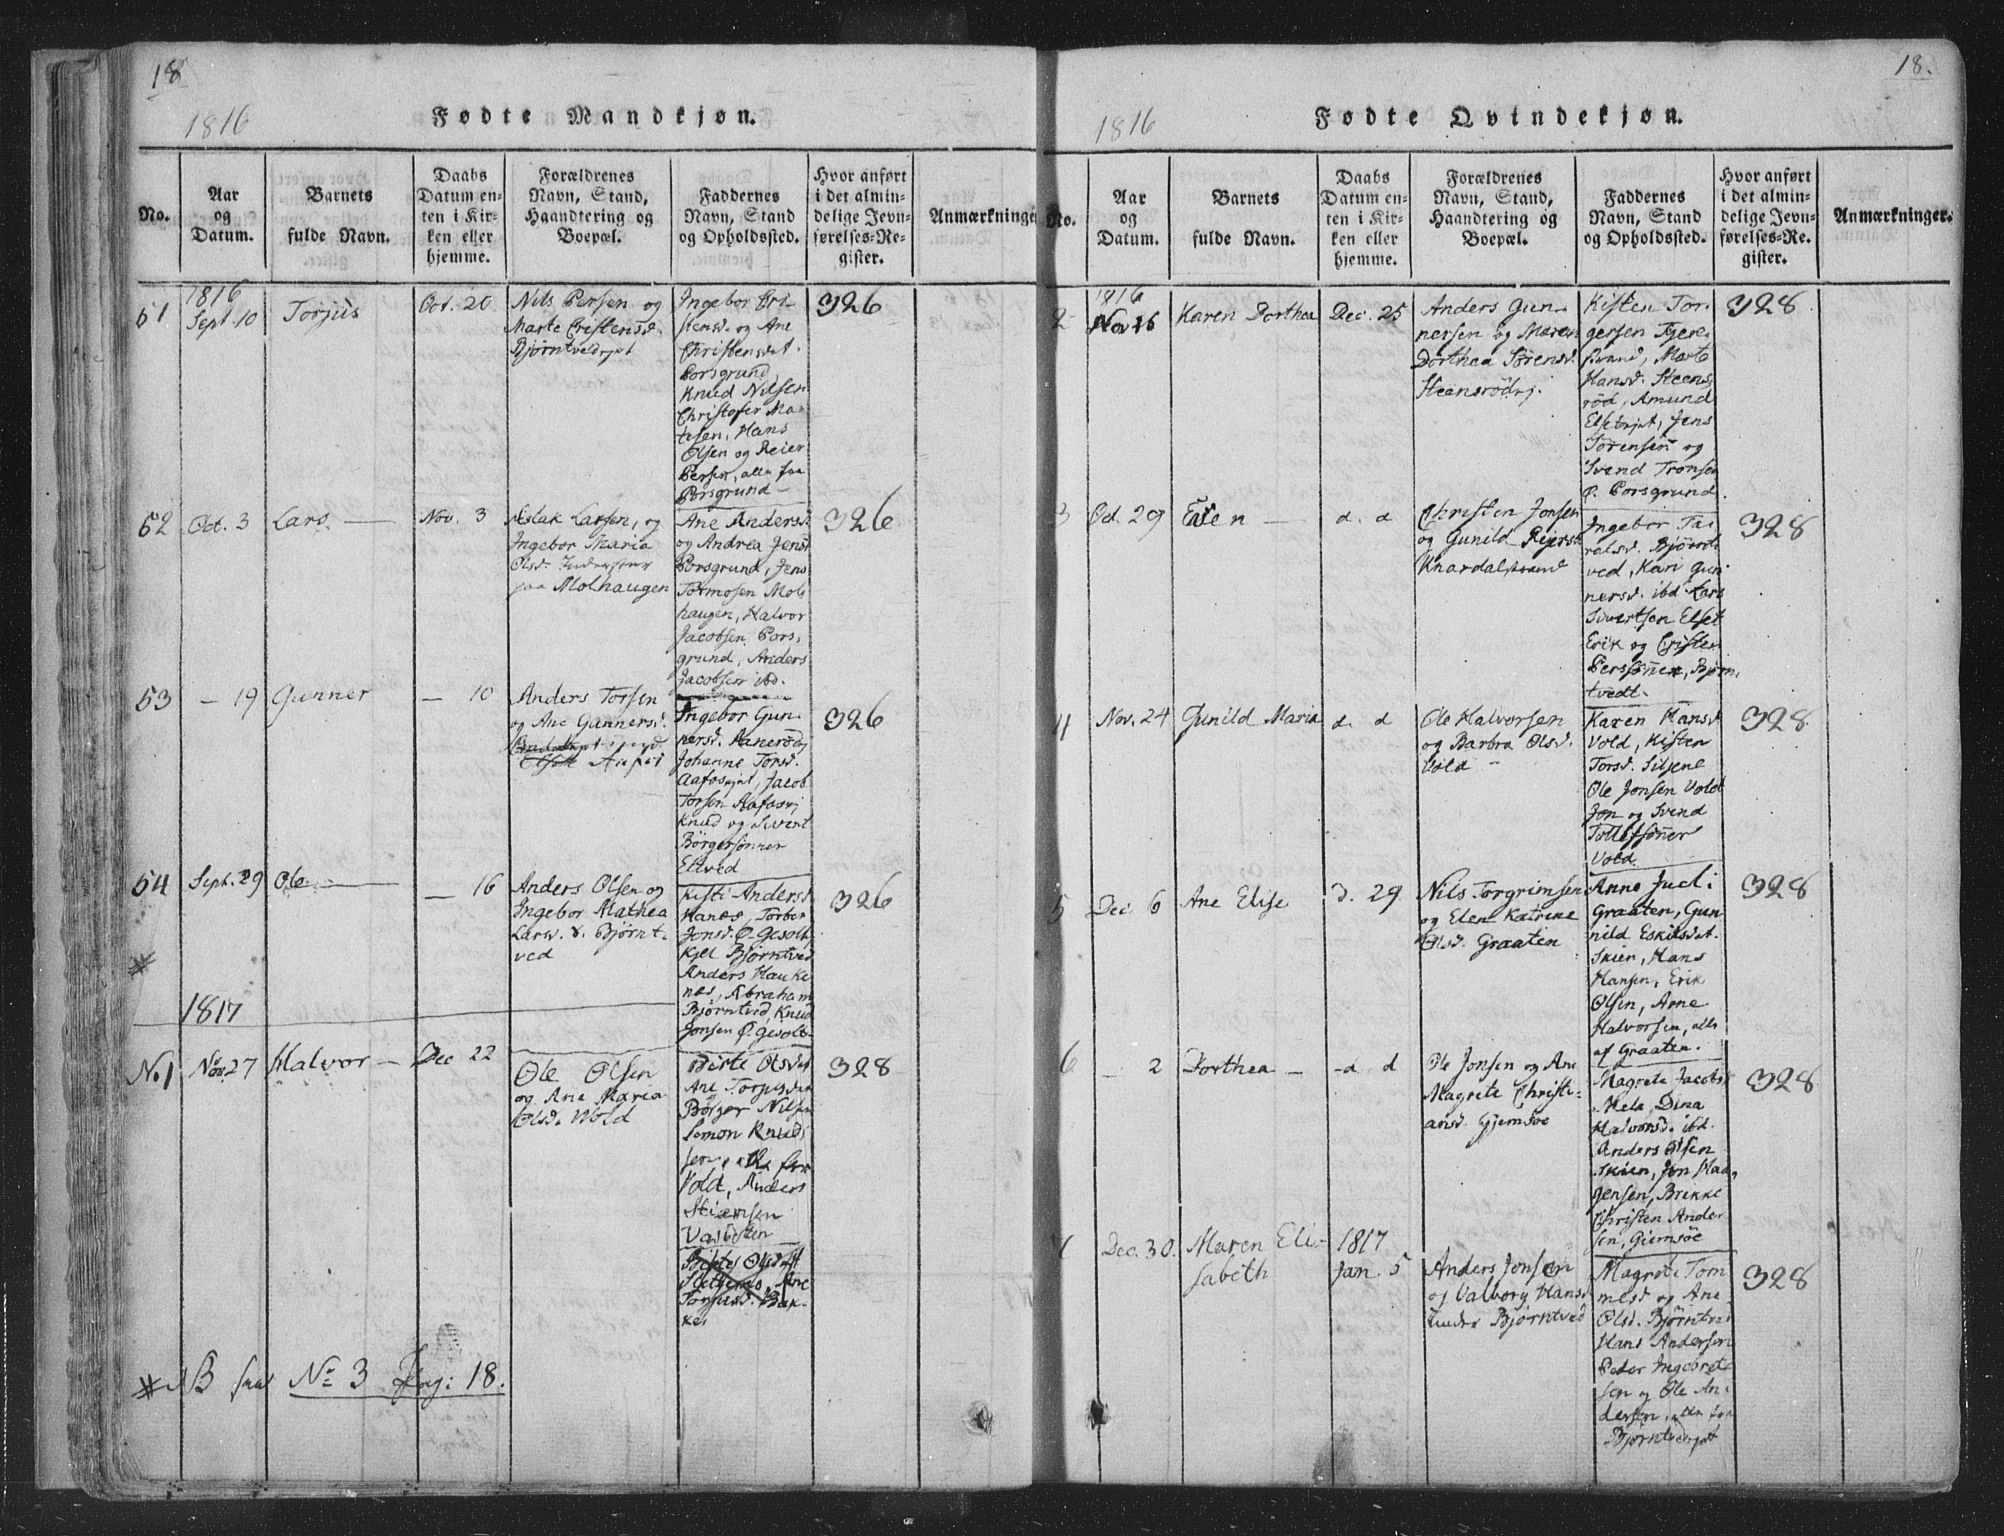 18
1816
Fødte Mandkjøn.
No.
Aar
og
Datum.
Barnets
fulde Navn.
Daabs
Datum en-
ten i Kir-
ken eller
hjemme.
Forældrenes
Navn, Stand,
Haandtering og
Boepæl.
Faddernes
Navn, Stand
og Opholdssted.
Hvor anført
i det almin-
delige Jevn-
førelses-Re-
gister.
Anmærkninger
51
1816
Sept. 10
Torjus
Oct. 20
Nils Persen og
Marte Cristensd.
Ingebor Cri-
stensd. og Ane
Christensdat.
Porsgrund,
Knud Nilsen
Christofer Mar-
tesen, Hans
Olsen og Reier
Persen, alle fra
Porsgrund -
326
52
Oct. 3
Lars. —
Nov. 3
Aslak Larsen, og
Ingebor Maria
Olsd.
paa Molhaugen
Ane Andersd.
og Andrea Jensd
Porsgrund, Jens
Tormosen Mol-
haugen, Halvor
Jacobsen Pors-
grund, Anders
Jacobsen ibd.
326
53
- 19
Gunner
- 10
Anders Torsen
og Ane Gunnersd.
Ingebor Gun-
nersd.
Johanne Torsd.
Jacob
Torsen
Knud og Sivert
Börgersönner
Eltved
326
54
Sept. 29
Ole —
- 16
Anders Olsen og
Ingebor Mathea
Larsd. Bjørnt-
ved
Kisti Andersd
Hanæs, Torbor
Jonsd. Ø. Gesolt
Kjel Bjørntved
Anders Hauke-
næs, Abraham
Bjørntved, Knud
Jonsen Ø. Gesolt-
326
1817
No 1
Nov. 27
Halvor —
Dec 22
Ole Olsen
og Ane Maria
Olsd. Wold
Birte Olsdat
Ane Torjusdat
Börger Nilsen
Simon Knud-
sen, alle fra
Vold, Anders
328
NB No 3 Pag: 18.
18.
1816
Fødte Qvindekjøn.
No.
Aar
og
Datum.
Barnets
fulde Navn.
Daabs
Datum en-
ten i Kir-
ken eller
hjemme.
Forældrenes
Navn, Stand,
Haandtering og
Boepæl.
Faddernes
Navn, Stand
og Opholdssted.
Hvor anført
i det almin-
delige Jevn-
førelses-Re-
gister.
Anmærkninger.
2
1816
Nov 16
Karen Dorthea
Dec. 25
Anders Gun-
nersen og Maren
Dorthea Sörensd.
Steensrödej.
Kisten Tor-
gersen Tjere-
strand, Marte
Hansd. Steens-
röd, Amund
Jens
Sörensen og
Svend Tronsen
Ø. Porsgrund.
328
3
Oct. 29
Elen —
d. d
Christen Jonsen
og Gunild Reiersd
Knardalstrand
Ingebor Ta-
ralsd. Bjørnt-
ved, Kari Gun-
nersd. ibd. Lars
Sivertsen Elset
Erik og Cristen
Perssönner, Bjørn-
tvedt.
328
4
Nov. 24
Gunild Maria
d. d
Ole Halvorsen
og Barbra Olsd.
Vold
Karen Hansd
Vold, Kisten
Torsd. Siljene
Ole Jonsen Vold
Jon og Svend
Tollefsönner
Vold
328
5
Dec. 6
Ane Elise
d. 29
Nils Torgrimsen
og Elen Katrine
Olsd. Graaten
Anne Judi:
Graaten, Gun-
nild Eskilsdat.
Skien, Hans
Hansen, Erik
Olsen, Arne
Halvorsen, alle
af Graaten.
328
6
- 2
Dorthea —
- d d
Ole Jonsen og Ane
Magrete Christi-
ansd. Gjemsøe
Magrete Jacobs
Mela, Dina
Halvorsd. ibd.
Anders Olsen
Skien, Jon Haa-
gensen, Brekke
Christen Ander-
sen, Giemsöe
328
7
Dec. 30.
Maren Eli-
sabeth
1817
Jan. 5
Anders Jonsen
og Valborg Hansd
under Bjørntved
Magrete Tom-
mesd og Ane
Olsd. Bjørntve
Hans Andersen
Peder Ingebret-
sen og Ole An-
dersen, alle fra
328